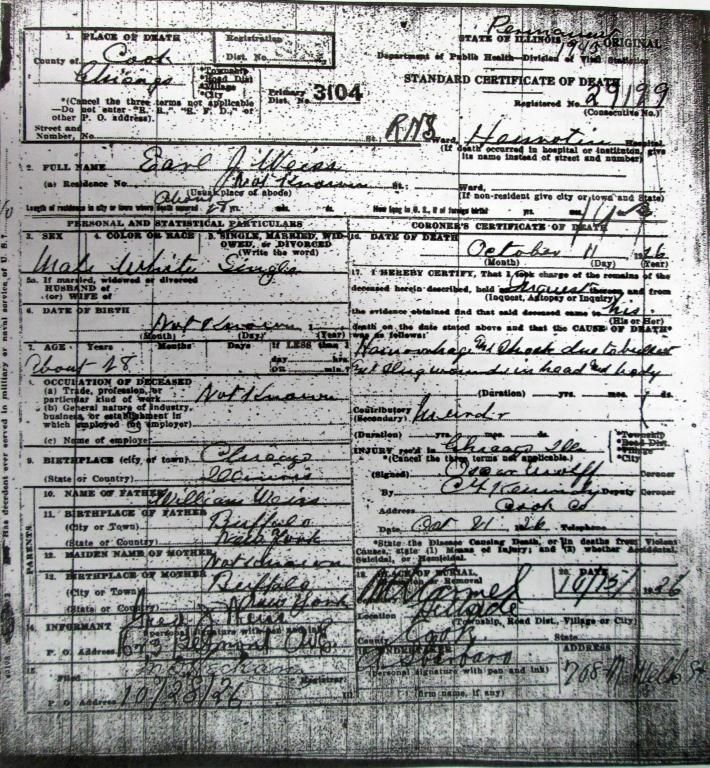 Permanent
1. PLACE OF DEATH
Registration
Dist. No.
STATE OF ILLINOIS
ORIGINAL
County of Cook
Department of Public Health—Division of Vital Statistics
Chicago
*Township
*Road Dist
*Village
*City
STANDARD CERTIFICATE OF DEATH
Primary
Dist. No. 3104
*(Cancel the three terms not applicable
—Do not enter "R. R.," "R. F. D.," or
other P. O. address).
Registered No. 29199
(Consecutive No.)
Street and
Number, No. St. Ward, Hospital
(If death occurred in hospital or institution, give
its name instead of street and number)
2. FULL NAME Earl J. Weiss
(a) Residence No. Not Known St.; Ward,
(Usual place of abode) (If non-resident give city or town and State)
Length of residence in city or town where death occurred About 28 yrs. mos. ds. How long in U. S., if of foreign birth? yrs. mos. ds.
PERSONAL AND STATISTICAL PARTICULARS
3. SEX 4. COLOR OR RACE 5. SINGLE, MARRIED, WID-
OWED, or DIVORCED
(Write the word)
Male White Single
5a. If married, widowed or divorced
HUSBAND of
(or) WIFE of
6. DATE OF BIRTH Not Known
(Month) (Day) (Year)
7. AGE Years Months Days If LESS than 1
day hrs.
OR min.?
About 28
8. OCCUPATION OF DECEASED
(a) Trade, profession, or
particular kind of work Not Known
(b) General nature of industry,
business, or establishment in
which employed (or employer)
(c) Name of employer
9. BIRTHPLACE (city or town) Chicago
(State or Country) Illinois
PARENTS
10. NAME OF FATHER William Weiss
11. BIRTHPLACE OF FATHER
(City or Town) Buffalo
(State or Country) New York
12. MAIDEN NAME OF MOTHER Not Known
13. BIRTHPLACE OF MOTHER
(City or Town) Buffalo
(State or Country) New York
14. INFORMANT Fred J. Weiss
(personal signature with pen and ink)
P. O. Address Belmont Ave.
15. Filed 10/28/26 Registrar
P. O. Address
CORONER'S CERTIFICATE OF DEATH
16. DATE OF DEATH
October 11 1926
(Month) (Day) (Year)
17. I HEREBY CERTIFY, That I took charge of the remains of the
deceased herein described, held Inquest thereon and from
(Inquest, Autopsy or Inquiry)
the evidence obtained find that said deceased came to his
(His or Her)
death on the date stated above and that the CAUSE OF DEATH*
was as follows:
Hemorrhage and Shock due to bullet
wounds in head and body
(Duration) yrs. mos. ds.
Contributory
(Secondary) Murder
(Duration) yrs. mos. ds.
INJURY rec'd in Chicago Ill
*Township
*Road Dist.
*Village
*City
*(Cancel the three terms not applicable.)
(Signed) Oscar Wolff Coroner
By C F Kennedy Deputy Coroner
Address Cook Co
Date Oct 21 1926 Telephone
*State the Disease Causing Death, or in deaths from Violent
Causes, state (1) Means of Injury; and (2) whether Accidental,
Suicidal, or Homicidal.
19. PLACE OF BURIAL,
Cremation or Removal
20. DATE
Mt Carmel 10/15/ 1926
Location Hillside
(Township, Road Dist., Village or City)
County Cook State
21. UNDERTAKER ADDRESS
A Sbarbaro 708 N. Wells St
(personal signature with pen and ink)
(firm name, if any)
Has decedent ever served in military or naval service of U. S.?